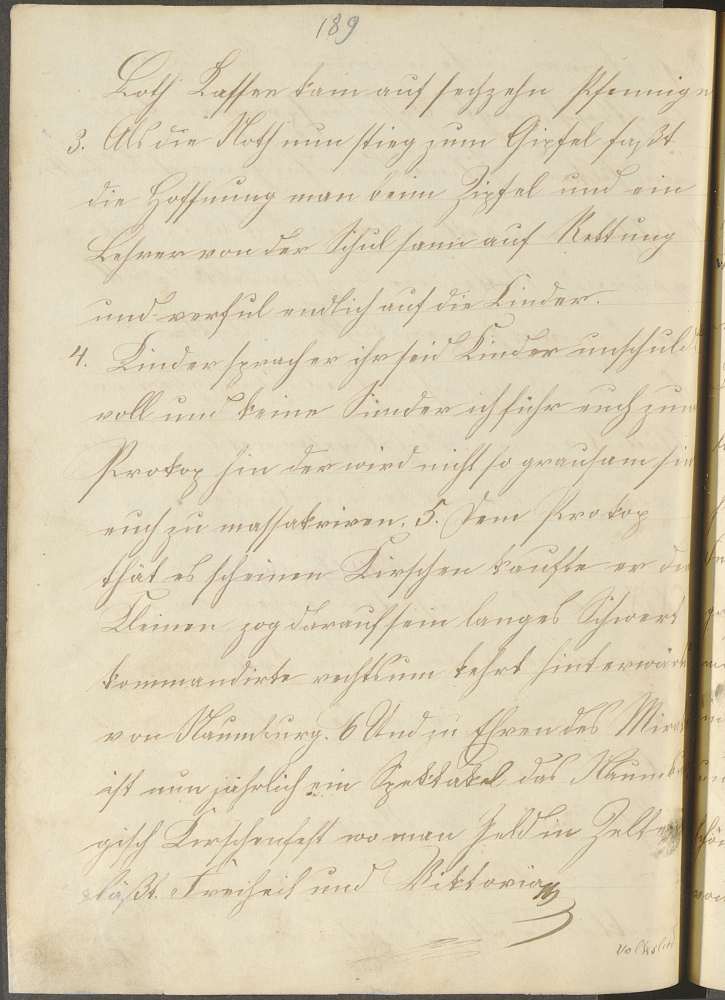 189
Loth Kaffee kam auf sechzehn Pfennige
3. Als die Noth nun stieg zum Gipfel faßt
die Hoffnung man beim Zipfel und ein
Lehrer von der Schul sann auf Rettung
und verful endlich auf die Kinder.
4. Kinder sprach er ihr seid Kinder unschuld
voll und keine Sünder ich führ euch zum
Prokop hin der wird nicht so grausam sin
euch zu massakriren. 5. Dem Prokop
thät es scheinen Kirschen kaufte er den
Kleinen zog darauf sein langes Schwert
kommandirte rechtsum kehrt hinterwärts
von Naumburg. 6 Und zu Ehren des Mirak
ist nun jährlich ein Spektakel das Naumbur
gisch Kirschenfest wo man Geld in Zelten
läßt. Freiheit und Viktoria
Volkslied